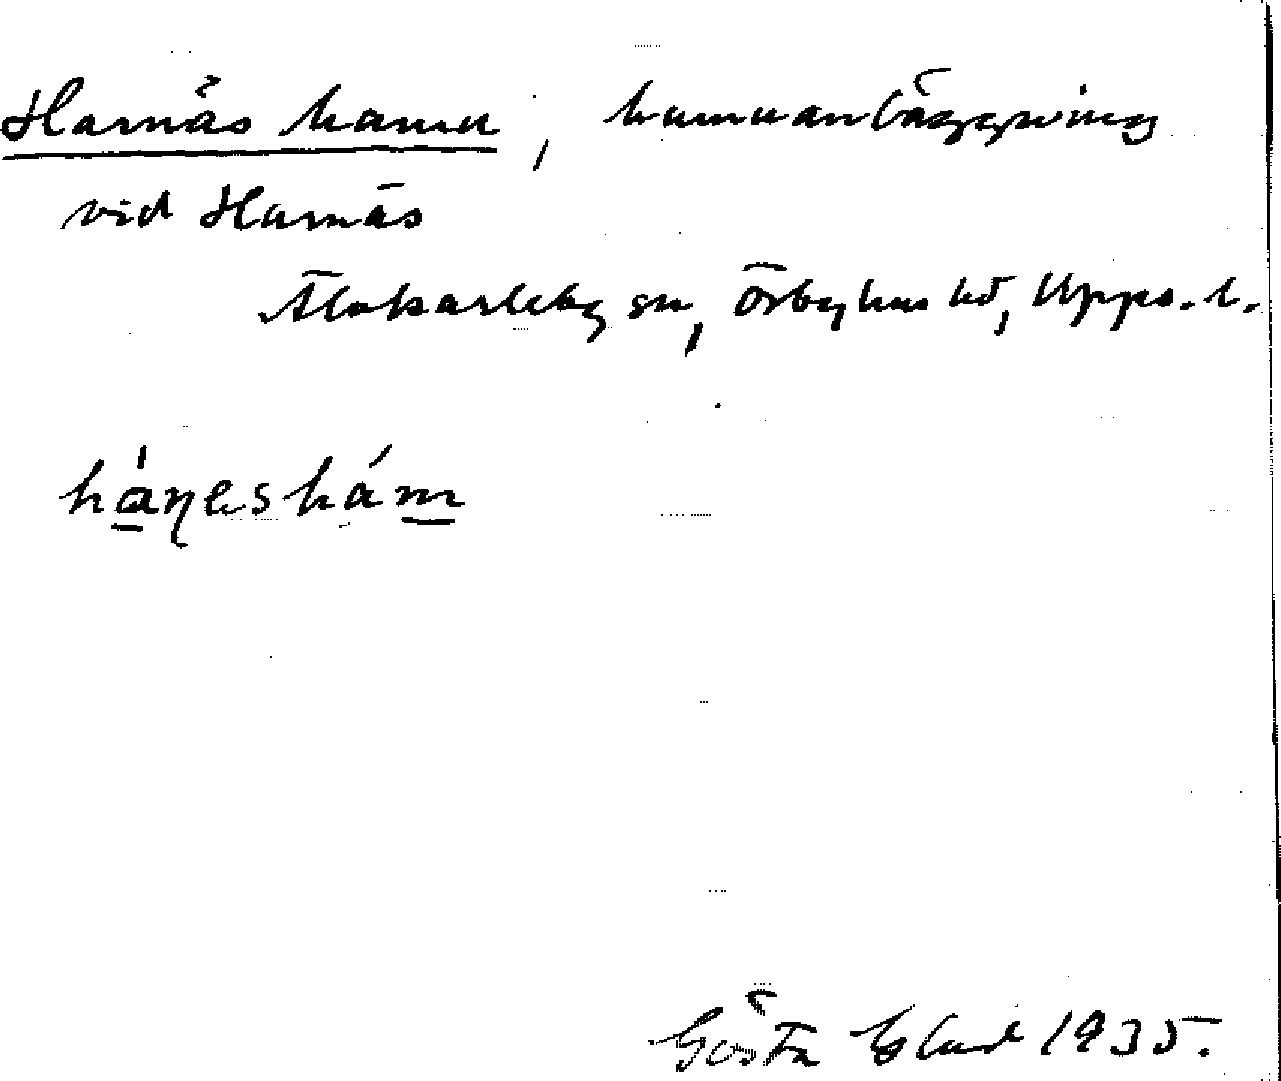 Harnäs hamn, hamnanläggning
vid Harnäs
Älvkarleby sn, Örbyhus hd, Upps. l.
hàɳes hám
Gösta 1935.